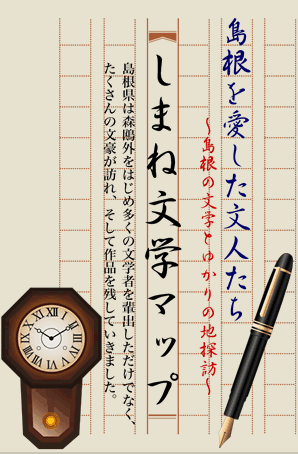 島根を愛した文人たち
～島根の文学とゆかりの地探訪～
しまね文学マップ
島根県は森鴎外をはじめ多くの文学者を輩出しただけでなく、
たくさんの文豪が訪れ、そして作品を残していきました。